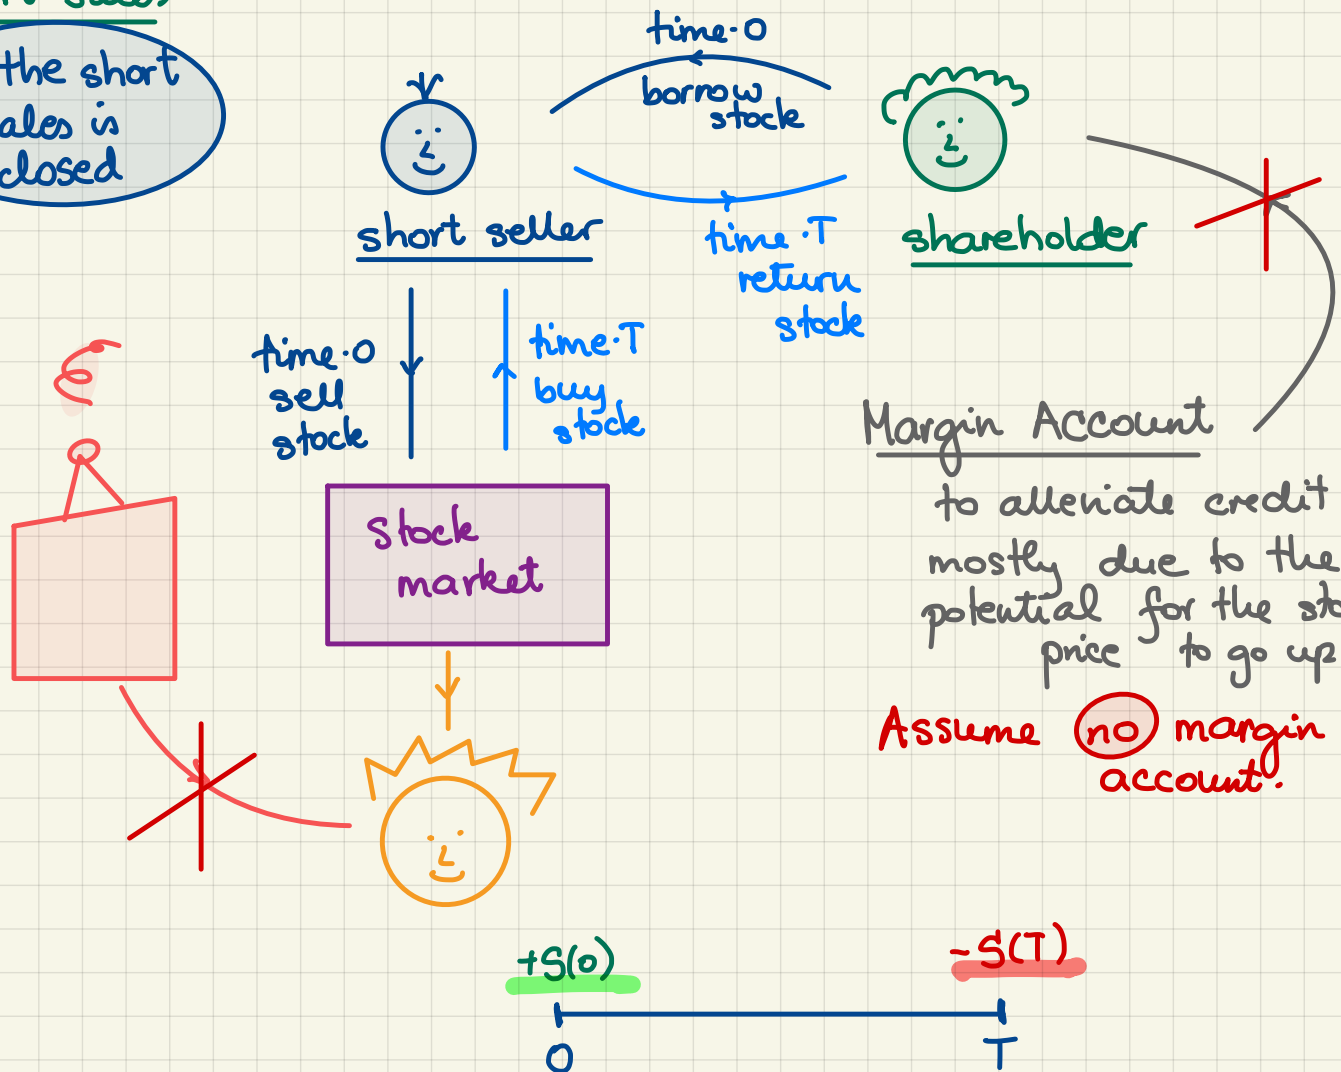 the short
ales is
closed
time·0
borrow
stock
short seller
time·T
return
stock
shareholder
time·0
sell
stock
time·T
buy
stock
Stock
market
Margin Account
to alleviate credit
mostly due to the
potential for the sto
price to go up
Assume no margin
account.
+S(0)
-S(T)
0
T